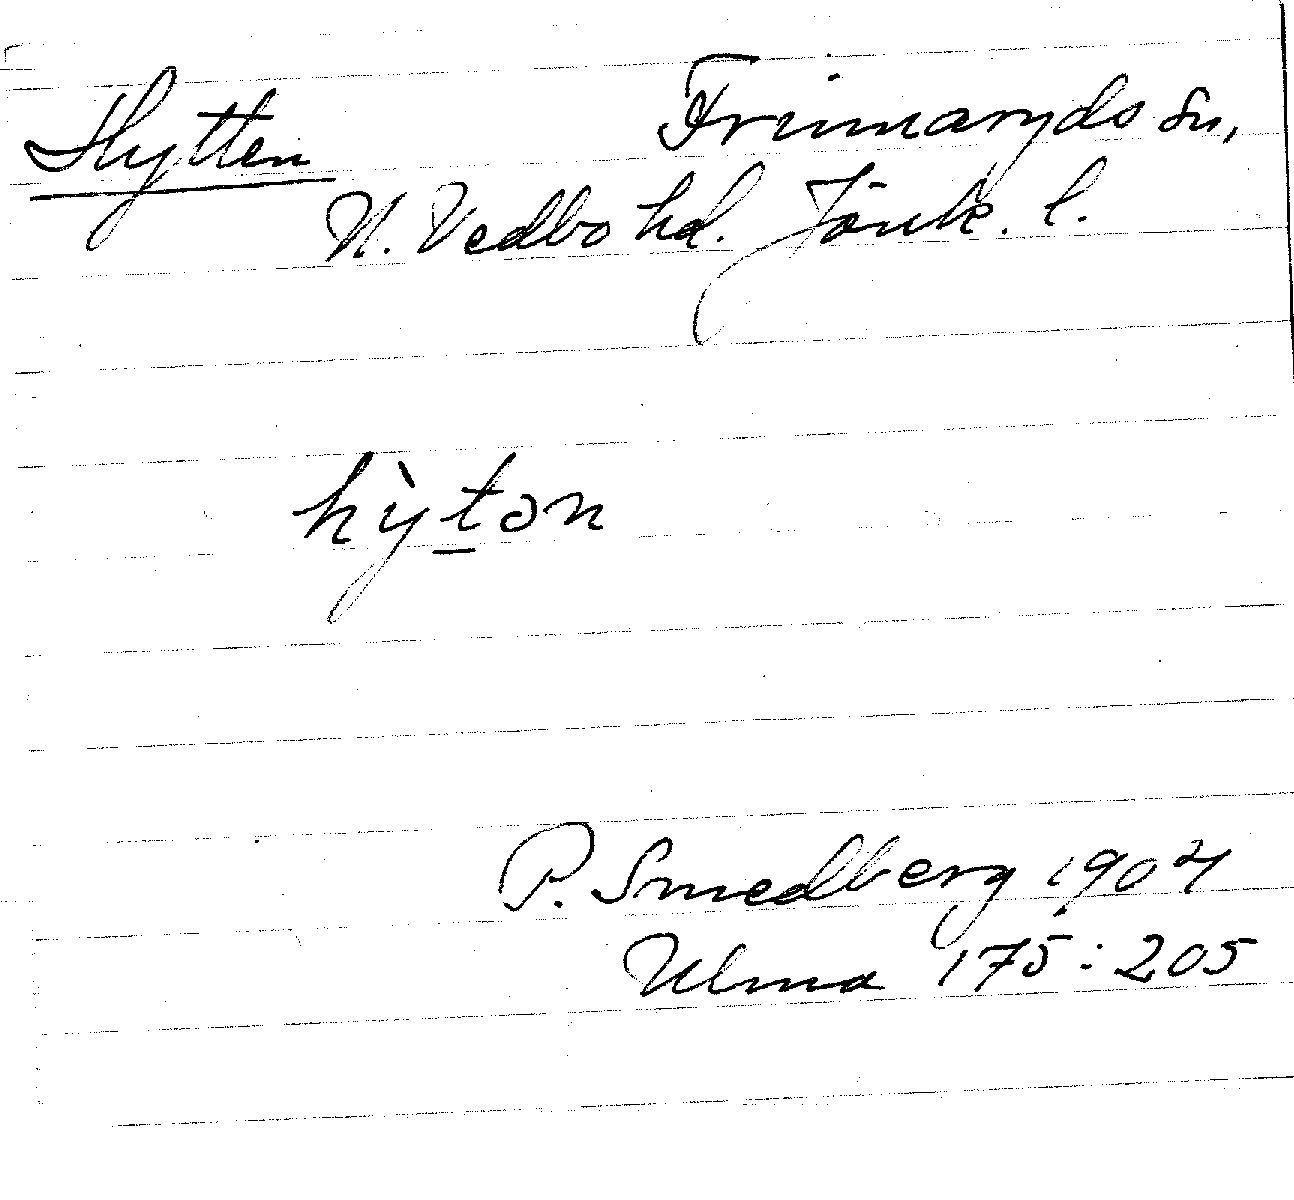 Hytten Frinnaryds sn,
N. Vedbo hd. Jönk. l.
hỳt̲ən
P. Smedberg 1904
Ulma 175:205